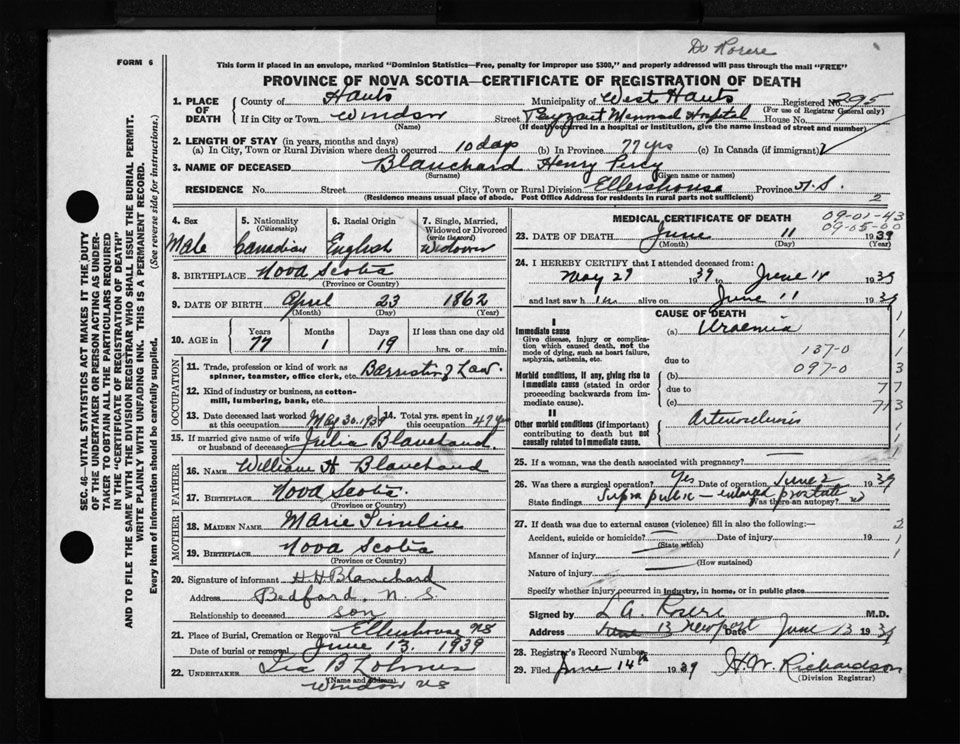 FORM 6
This form if placed in an envelope, marked "Dominion Statistics—Free, penalty for improper use $300," and properly addressed will pass through the mail "FREE"
PROVINCE OF NOVA SCOTIA—CERTIFICATE OF REGISTRATION OF DEATH
1. PLACE OF DEATH County of Hants Municipality of West Hants Registered No. 295
(For use of Registrar General only)
If in City or Town Windsor Street Payzant Memorial Hospital House No.
(Name) (If death occurred in a hospital or institution, give the name instead of street and number)
2. LENGTH OF STAY (in years, months and days)
(a) In City, Town or Rural Division where death occurred 10 days (b) In Province 77 yrs (c) In Canada (if immigrant)
3. NAME OF DECEASED Blanchard Henry Percy
(Surname) (Given name or names)
RESIDENCE No. Street City, Town or Rural Division Ellershouse Province N.S.
(Residence means usual place of abode. Post Office Address for residents in rural parts not sufficient) 2
SEC. 46—VITAL STATISTICS ACT MAKES IT THE DUTY
OF THE UNDERTAKER OR PERSON ACTING AS UNDERTAKER TO OBTAIN ALL THE PARTICULARS REQUIRED
IN THE "CERTIFICATE OF REGISTRATION OF DEATH"
AND TO FILE THE SAME WITH THE DIVISION REGISTRAR WHO SHALL ISSUE THE BURIAL PERMIT.
WRITE PLAINLY WITH UNFADING INK. THIS IS A PERMANENT RECORD.
Every item of Information should be carefully supplied. (See reverse side for instructions.)
4. Sex Male
5. Nationality (Citizenship) Canadian
6. Racial Origin English
7. Single, Married, Widowed or Divorced (write the word) Widower
8. BIRTHPLACE Nova Scotia
(Province or Country)
9. DATE OF BIRTH April 23 1862
(Month) (Day) (Year)
10. AGE in Years 77 Months 1 Days 19 If less than one day old hrs. or min.
OCCUPATION
11. Trade, profession or kind of work as spinner, teamster, office clerk, etc. Barrister of Law
12. Kind of industry or business, as cotton-mill, lumbering, bank, etc.
13. Date deceased last worked at this occupation May 30, 1939 14. Total yrs. spent in this occupation 47 yrs
15. If married give name of wife or husband of deceased Julia Blanchard
FATHER
16. NAME William H Blanchard
17. BIRTHPLACE Nova Scotia
(Province or Country)
MOTHER
18. MAIDEN NAME Marie
19. BIRTHPLACE Nova Scotia
(Province or Country)
20. Signature of informant H.H Blanchard
Address Bedford, N S.
Relationship to deceased son
21. Place of Burial, Cremation or Removal Ellershouse NS
Date of burial or removal June 13, 1939
22. UNDERTAKER
(Name and address)
Windsor NS
MEDICAL CERTIFICATE OF DEATH
09-01-43
09-05-00
23. DATE OF DEATH June 11 1939
(Month) (Day) (Year)
24. I HEREBY CERTIFY that I attended deceased from:
May 27 1939 to June 11 1939
and last saw him alive on June 11 1939
CAUSE OF DEATH
I
Immediate cause
Give disease, injury or complication which caused death, not the mode of dying, such as heart failure, asphyxia, asthenia, etc.
(a) Uraemia
137-0
due to
097-0
Morbid conditions, if any, giving rise to immediate cause (stated in order proceeding backwards from immediate cause).
(b)
due to
(c)
II
Other morbid conditions (if important) contributing to death but not causally related to immediate cause.
25. If a woman, was the death associated with pregnancy?
26. Was there a surgical operation? Yes Date of operation June 2 1939
State findings Supra pubic — enlarged prostate Was there an autopsy?
27. If death was due to external causes (violence) fill in also the following:—
Accident, suicide or homicide? Date of injury 19
(State which)
Manner of injury
(How sustained)
Nature of injury
Specify whether injury occurred in industry, in home, or in public place
Signed by M.D.
Address Newport Date June 13 1939
28. Registrar's Record Number
29. Filed June 14th 1939 H.W. Richardson
(Division Registrar)